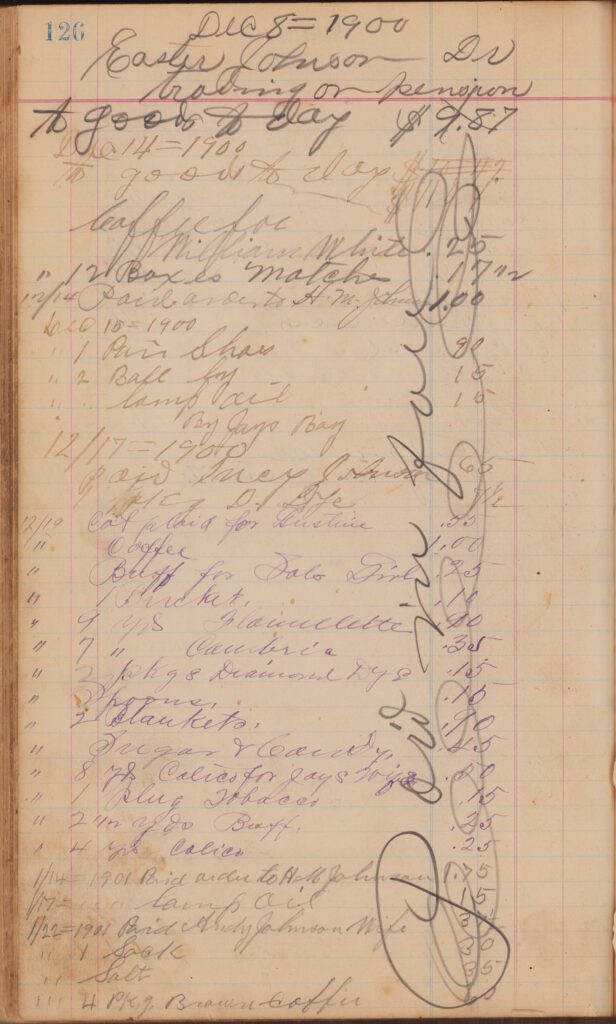 126
Dec 8 = 1900
Easter Johnson Dr
trading on pension
to goods to day $ 9.87
Dec 14 = 1900
to goods to day
Coffee for
William White . 25
" 12 Boxes Matches . 17 1/2
12/14 Paid order to H. M. Johnson 1.00
Dec 15 = 1900
" 1 Pair Shoes 90
" 2 Ball 15
" " lamp oil 15
By Jays Boy
12/17 = 1900
paid Lucy Johnson 65
Pkg D. Dye 7 1/2
12/19 Cot plaid for .55
" Coffee 1.00
" Buff for Girl .25
" 1 Bucket. .10
" 9 yds Flannellette .90
" 7 " Cambric .35
" 2 pkgs Diamond Dye .15
" Spoons. .15
" 2 Blankets. .90
" Sugar & Candy. .45
" 8 yds Calico for Jays Wife .50
" 1 plug Tobacco .15
" 2 1/2 yds Buff. .25
" 4 yds Calico .25
1/14 = 1901 Paid order to H M Johnson 1.75
1/17 = lamp oil
1/22 = 1901 Paid Andy Johnson Wife
" 1 Sack
" Salt
" 4 Pkg Brown Coffee
Paid in full